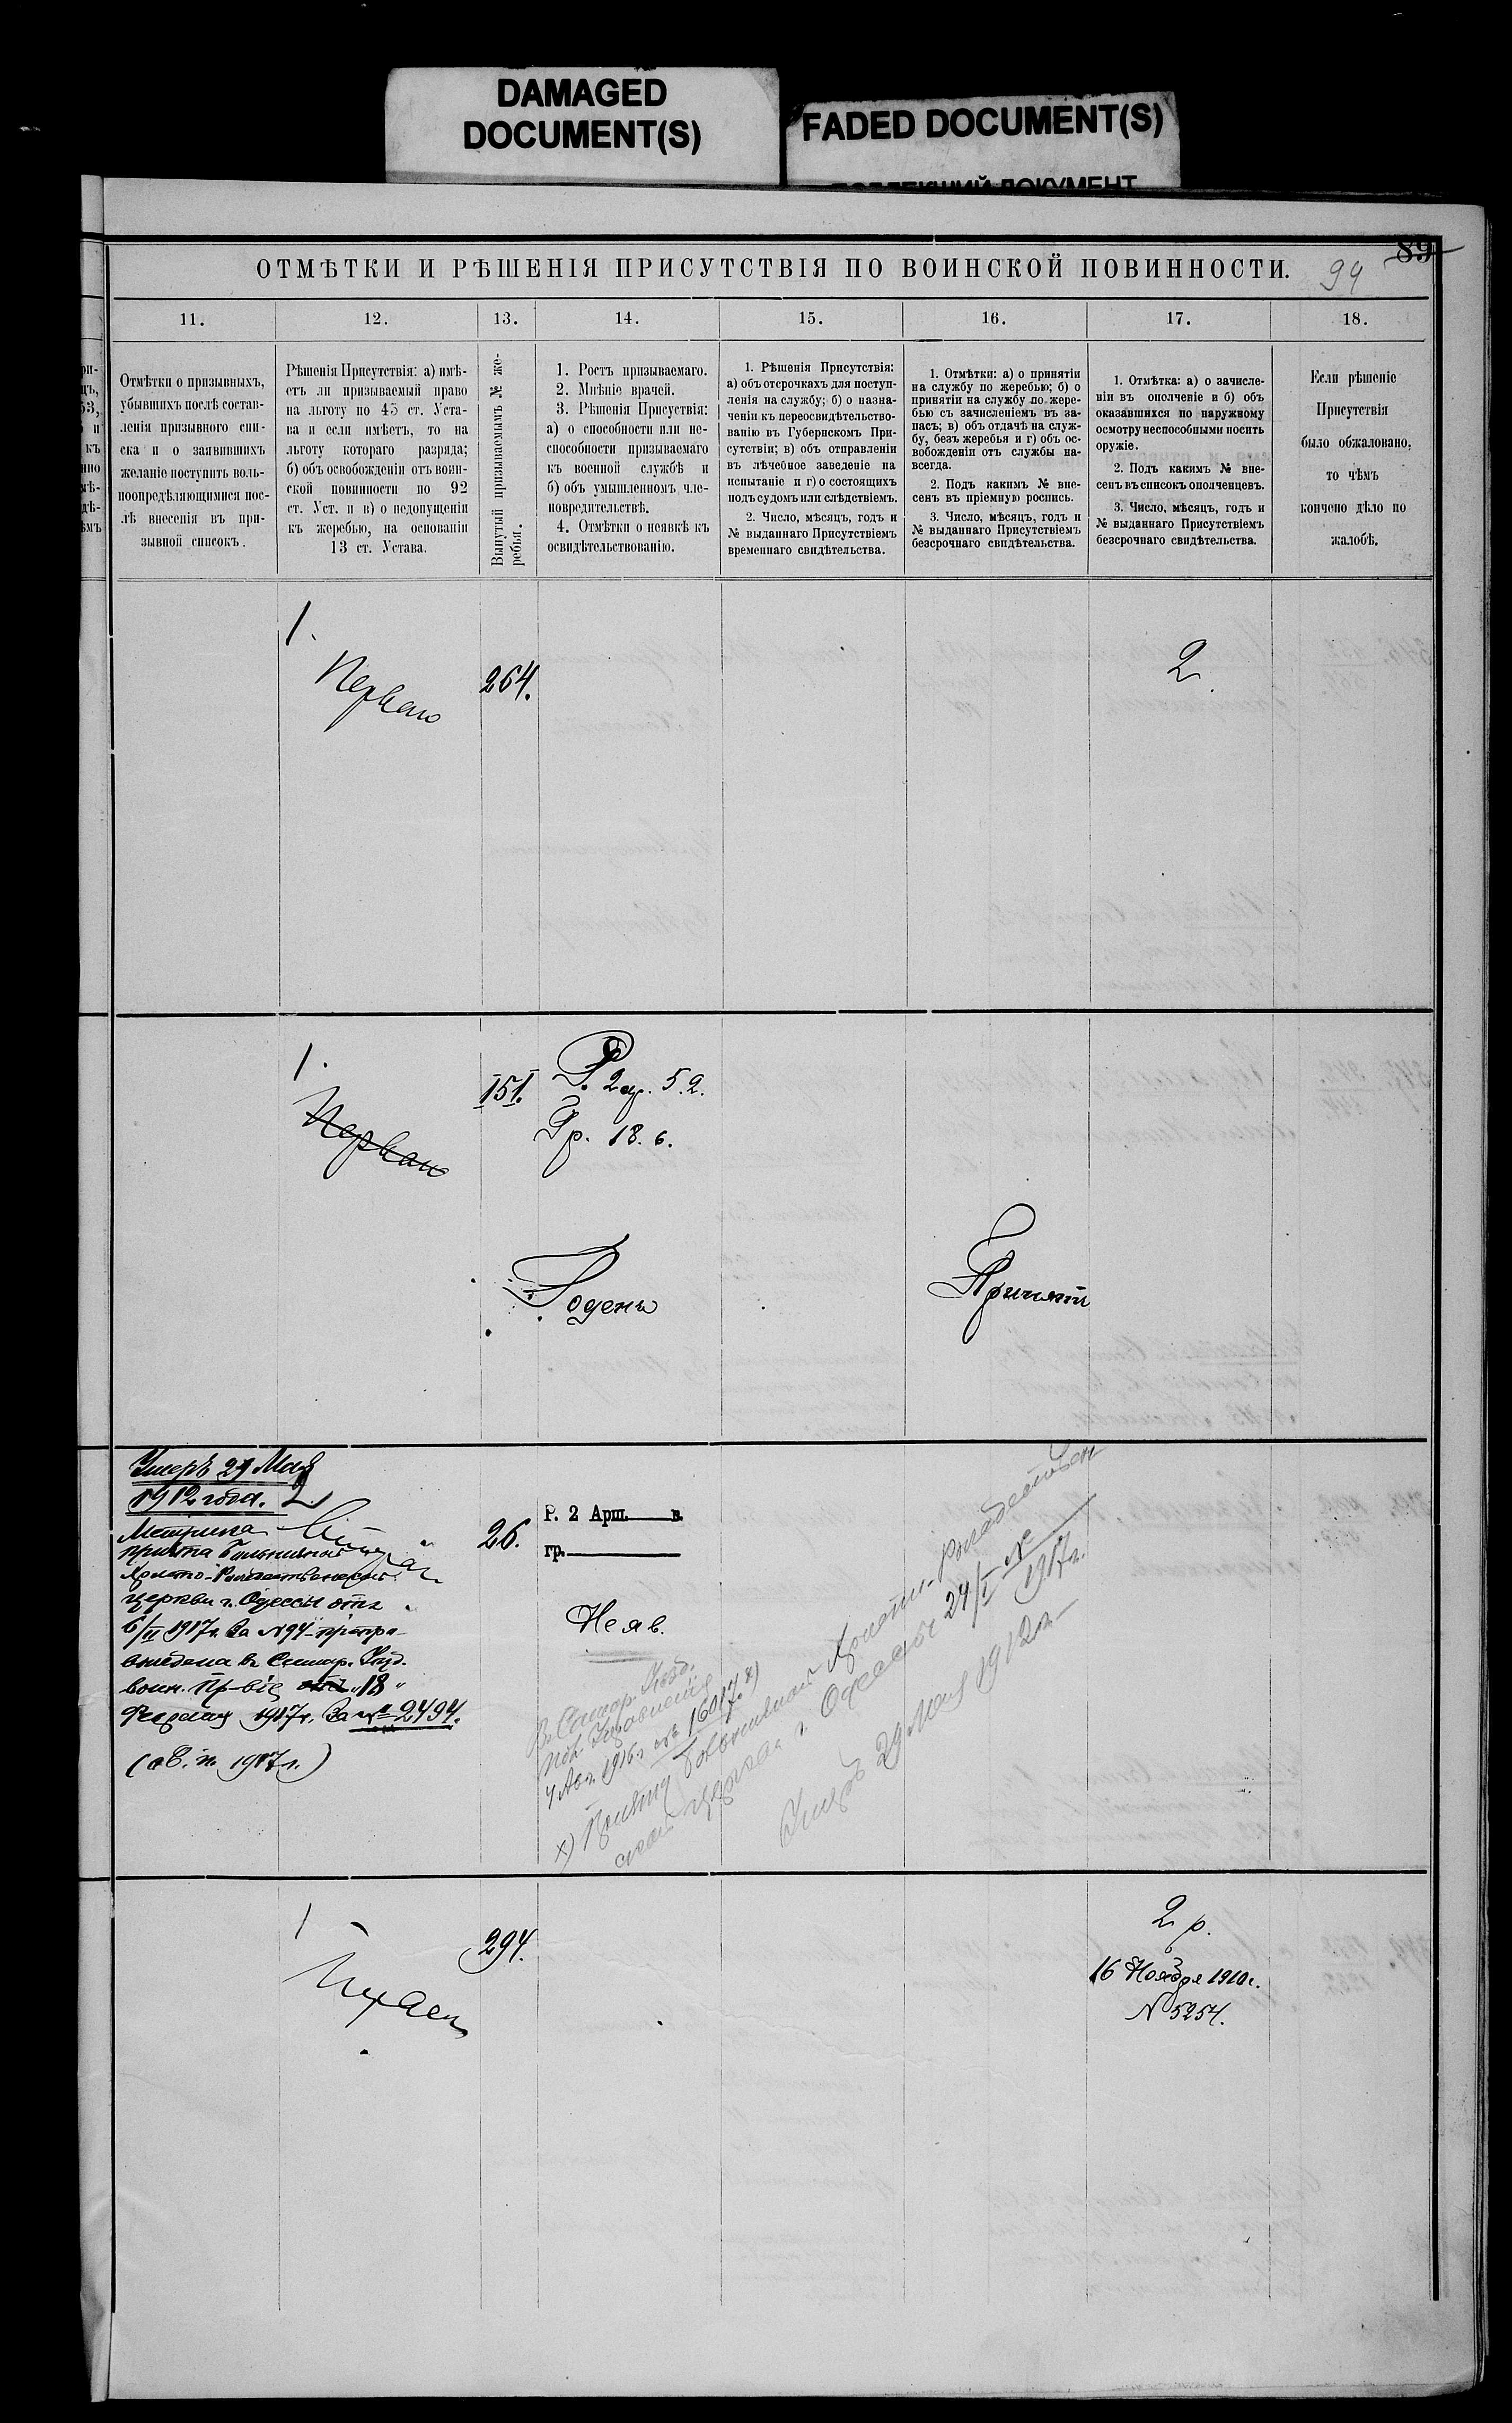 DAMAGED
DOCUMENT(S)
FADED DOCUMENT(S)
89
94
ОТМѢТКИ И РѢШЕНІЯ ПРИСУТСТВІЯ ПО ВОИНСКОЙ ПОВИННОСТИ.
11.
12.
13.
14.
15.
16.
17.
18.
Отмѣтки о призывныхъ,
убывшихъ послѣ состав-
ленія призывного спи-
ска и о заявившихъ
желаніе поступить воль-
ноопредѣляющимися пос-
лѣ внесенія въ при-
зывной списокъ.
Рѣшенія Присутствія: а) имѣ-
етъ ли призываемый право
на льготу по 45 ст. Уста-
ва и если имѣетъ, то на
льготу котораго разряда;
б) объ освобожденіи отъ воин-
ской повинности по 92
ст. Уст. и в) о недопущеніи
къ жеребью, на основаніи
13 ст. Устава.
Вынутый призываемымъ № же-
ребья.
1. Ростъ призываемаго.
2. Мнѣніе врачей.
3. Рѣшенія Присуствія:
а) о способности или не-
способности призываемаго
къ военной службѣ и
б) объ умышленномъ чле-
новредительствѣ.
4. Отмѣтки о неявкѣ къ
освидѣтельствованію.
1. Рѣшенія Присутствія:
а) объ отсрочкахъ для поступ-
ленія на службу; б) о назна-
ченіи къ переосвидѣтельство-
ванію въ Губернскомъ При-
сутствіи; в) объ отправленіи
въ лѣчебное заведеніе на
испытаніе и г) о состоящихъ
подъ судомъ или слѣдствіемъ.
2. Число, мѣсяцъ, годъ и
№ выданнаго Присутствіемъ
временнаго свидѣтельства.
1. Отмѣтки: а) о принятіи
на службу по жеребью; б) о
принятіи на службу по жере-
бью съ зачисленіемъ въ за-
пасъ; в) объ отдачѣ на служ-
бу, безъ жеребья и г) объ ос-
вобожденіи отъ службы на-
всегда.
2. Подъ какимъ № вне-
сенъ въ пріемную роспись.
3. Число, мѣсяцъ, годъ и
№ выданнаго Присутствіемъ
безсрочнаго свидѣтельства.
1. Отмѣтка: а) о зачисле-
ніи въ ополченіе и б) объ
оказавшихся по наружному
осмотру неспособными носить
оружіе.
2. Подъ какимъ № вне-
сенъ въ списокъ ополченцевъ.
3. Число, мѣсяцъ, годъ и
№ выданнаго Присутствіемъ
безсрочнаго свидѣтельства.
Если рѣшеніе
Присутствія
было обжаловано,
то чѣмъ
кончено дѣло по
жалобѣ.
1.
Перваго
264.
2.
1.
Перваго
151.
Р. 2 ар. 5.2.
Гр. 18.6.
Годенъ
Принятъ
Умеръ 29 Мая
1912 года.
Метрика
причта Больничной
Христо-Рождественской
церкви г. Одессы отъ
6/II 1917 г. за № 94 препро-
вождена въ
воин. Пр-віе 18
Февраля 1917 г. за № 2494.
1917 г.)
2
26.
Р. 2 Арш. в.
гр.
Неяв.
4 Авг. 1916 г. № 16017 х)
х) Причту Больничной Христо-Рождествен
ской церкви г. Одессы 24/I № 1917 г.
Умеръ 29 Мая 1912 г.
1
294.
2 р.
16 Ноября 1910 г.
№ 5254.